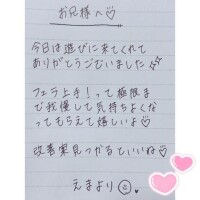 お兄様へ♡
今日は遊びに来てくれて
ありがとうございました✨
フェラ上手！って極限ま
で我慢して気持ちよくな
ってもらえて嬉しいよ♡
改善案見つかるといいね♡
えまより☺